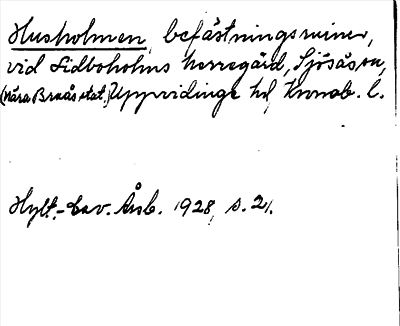 Husholmen, befästningsruiner,
vid Lidboholms herregård, Sjösås sn,
(nära Braås stat.) Uppvidinge hd, Kronob. l.
Hylt.-Cav. Årsb. 1928, s. 21.